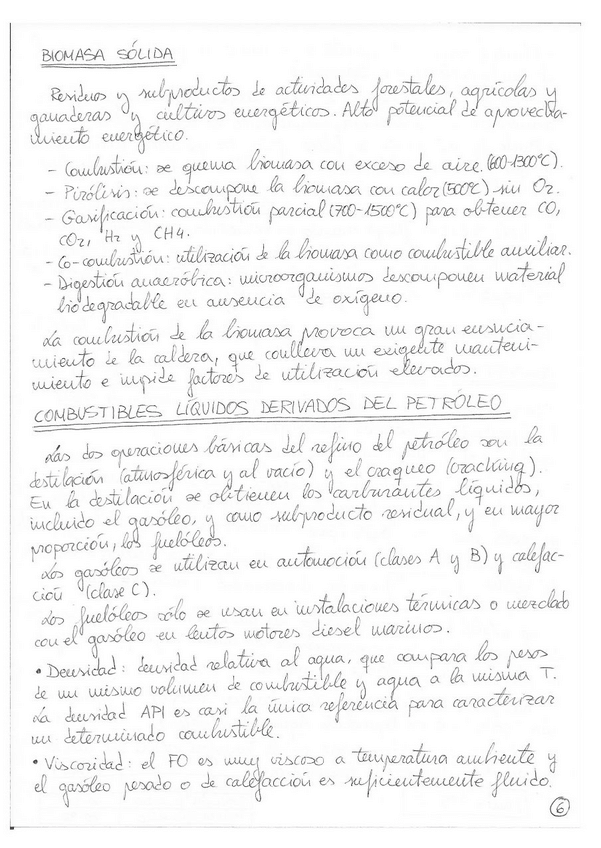 BIOMASA SÓLIDA
Residuos y subproductos de actividades forestales, agrícolas y
ganaderas y cultivos energéticos. Alto potencial de aprovecha-
miento energético.
- Combustión: se quema biomasa con exceso de aire. (600-1300°C).
- Pirólisis: se descompone la biomasa con calor (500°C) sin O2.
- Gasificación: combustión parcial (700-1500°C) para obtener CO,
CO2, H2 y CH4.
- Co-combustión: utilización de la biomasa como combustible auxiliar.
- Digestión anaeróbica: microorganismos descomponen material
biodegradable en ausencia de oxígeno.
La combustión de la biomasa provoca un gran ensucia-
miento de la caldera, que conlleva un exigente manteni-
miento e impide factores de utilización elevados.
COMBUSTIBLES LÍQUIDOS DERIVADOS DEL PETRÓLEO
Las dos operaciones básicas del refino del petróleo son la
destilación (atmosférica y al vacío) y el craqueo (cracking).
En la destilación se obtienen los carburantes líquidos,
incluido el gasóleo, y como subproducto residual, y en mayor
proporción, los fuelóleos.
Los gasóleos se utilizan en automoción (clases A y B) y calefac-
ción (clase C).
Los fuelóleos sólo se usan en instalaciones térmicas o mezclado
con el gasóleo en lentos motores diesel marinos.
• Densidad: densidad relativa al agua, que compara los pesos
de un mismo volumen de combustible y agua a la misma T.
La densidad API es casi la única referencia para caracterizar
un determinado combustible.
• Viscosidad: el FO es muy viscoso a temperatura ambiente y
el gasóleo pesado o de calefacción es suficientemente fluido.
6